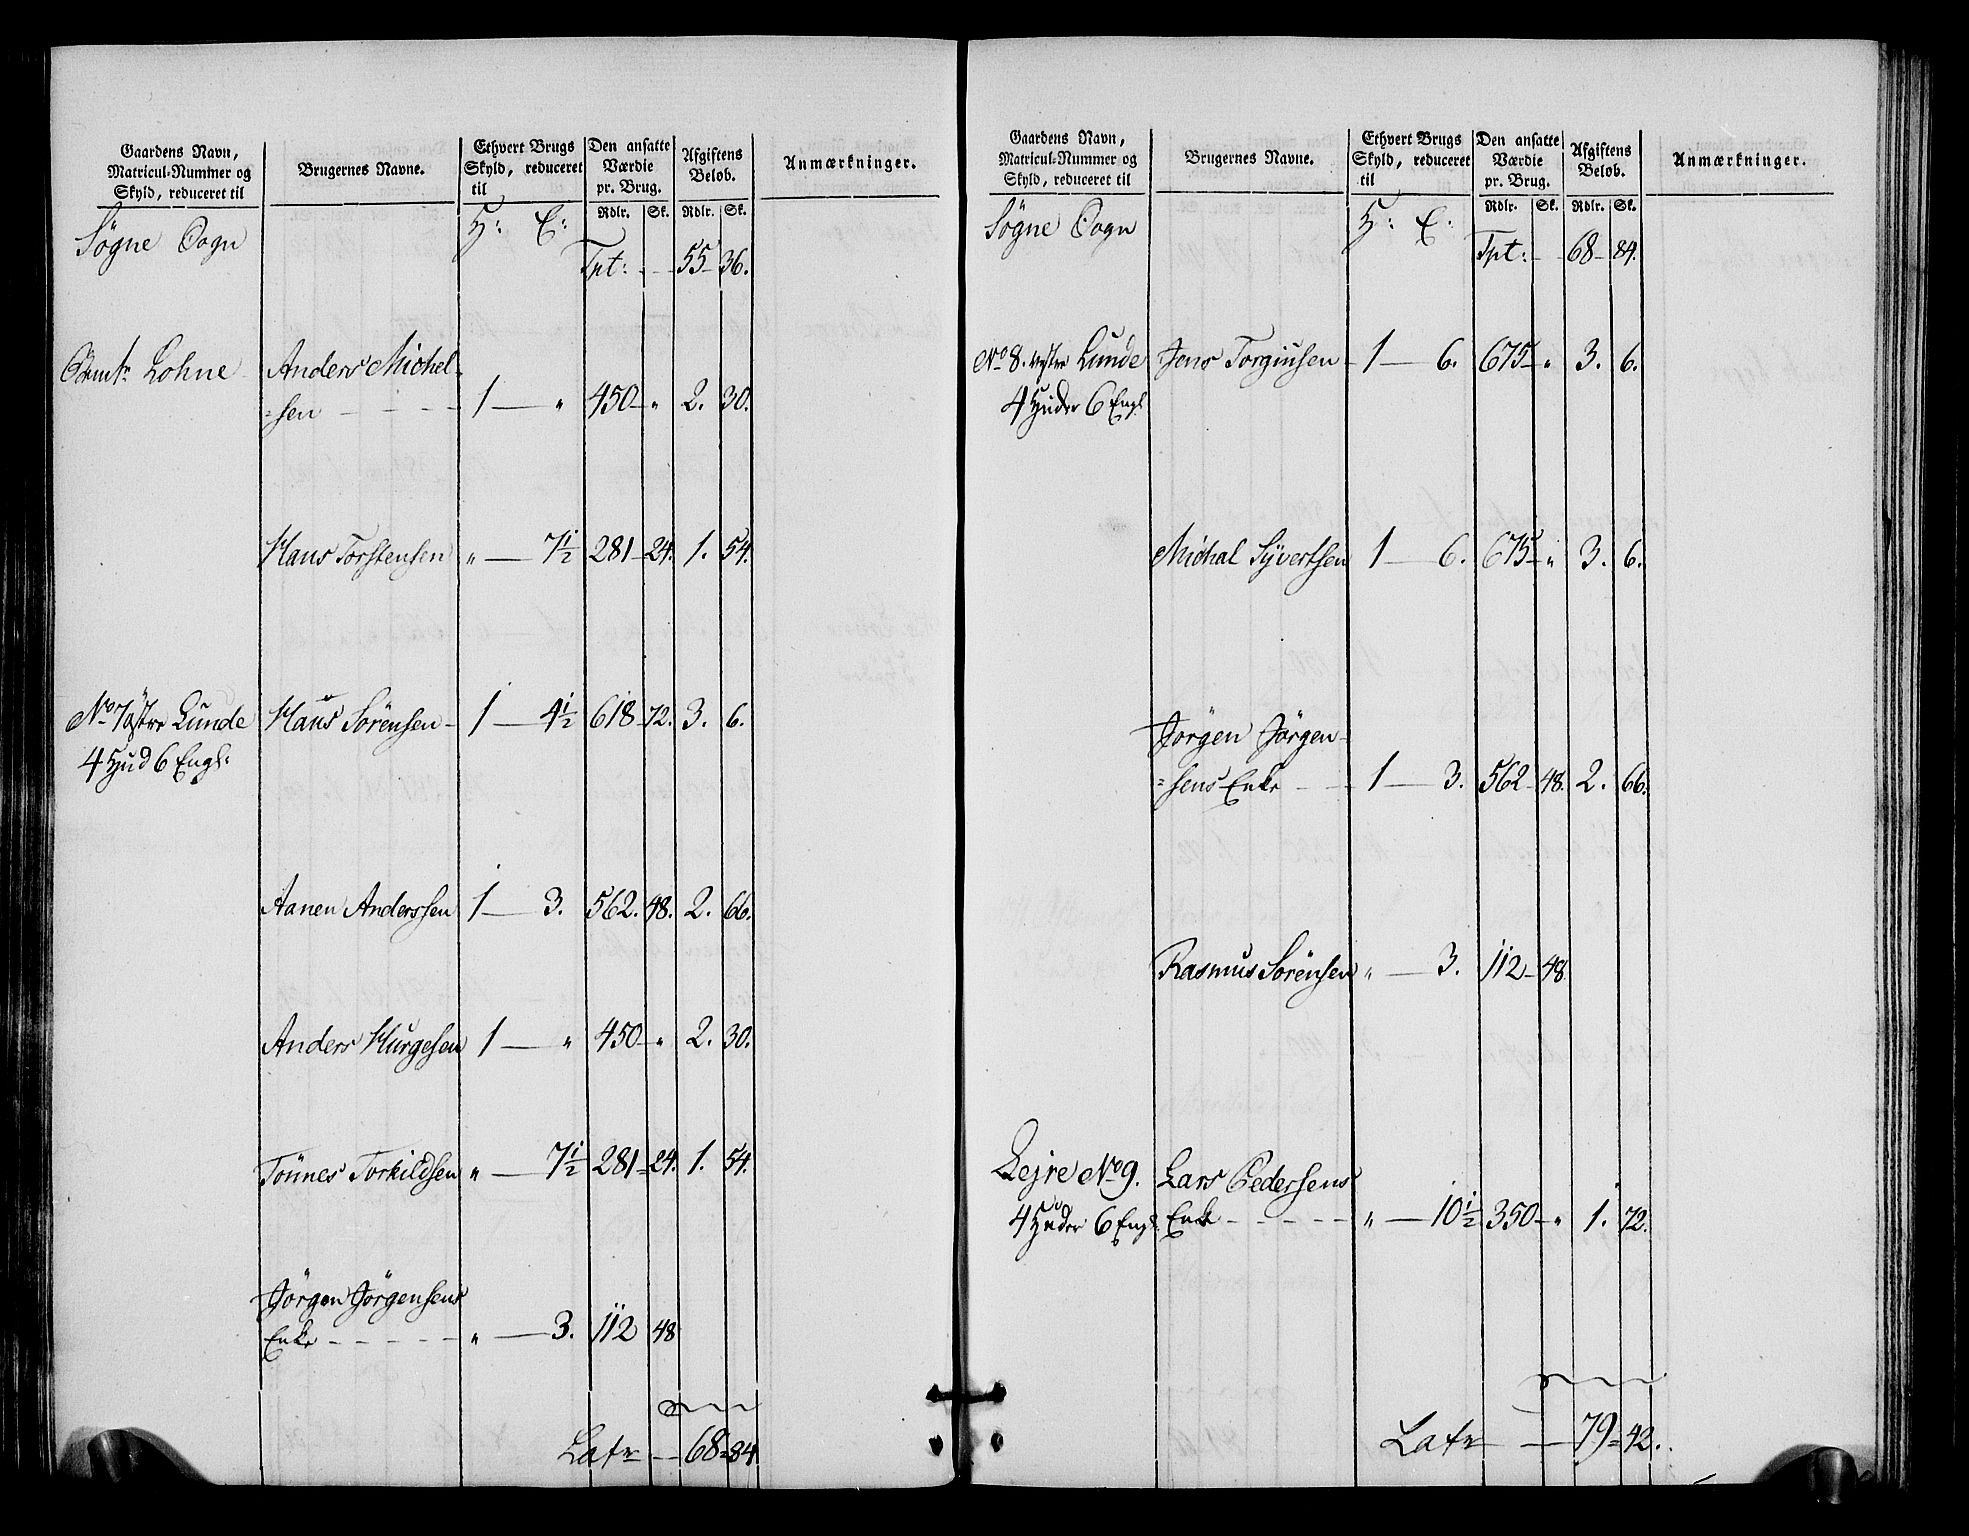 Gaardens Navn, Matricul-Nummer og Skyld, reduceret til
Brugernes Navne.
Ethvert Brugs Skyld, reduceret til
Den ansatte Værdie pr. Brug.
Afgiftens Beløb.
Anmærkninger.
Rdlr. Sk. Rdlr. Sk.
Søgne Sogn H: E:
Tpt: 55 36.
Lohne Anders Michel-
=sen 1 — „ 450 „ 2. 30.
Hans Torstensen „ — 7½ 281 24. 1. 54.
No 7 østre Lunde Hans Sørensen 1 — 4½ 618 72. 3. 6.
4 Hud 6 Engl:
Aanen Anderssen 1 — 3. 562. 48. 2. 66.
Anders Hurgesen 1 — „ 450 „ 2. 30.
Tönnes Torkildsen „ — 7½ 281 24. 1. 54.
Jørgen Jørgensens
Enke „ — 3. 112 48
Latr 68 = 84
Gaardens Navn, Matricul-Nummer og Skyld, reduceret til
Brugernes Navne.
Ethvert Brugs Skyld, reduceret til
Den ansatte Værdie pr. Brug.
Afgiftens Beløb.
Anmærkninger.
Rdlr. Sk. Rdlr. Sk.
Søgne Sogn H: E:
Tpt: 68 84.
No 8. vestre Lunde Jens Torgiusen 1 — 6. 675 „ 3. 6.
4 Huder 6 Engl
Michal Syvertsen 1 — 6. 675 „ 3. 6.
Jørgen Jørgen-
=sens Enke 1 — 3. 562 48. 2. 66.
Rasmus Sørensen „ — 3. 112 48.
Lejre No 9. Lars Pedersens
4 Huder 6 Engl. Enke „ — 10½ 350 „ 1. 72.
Latr 79 = 42.